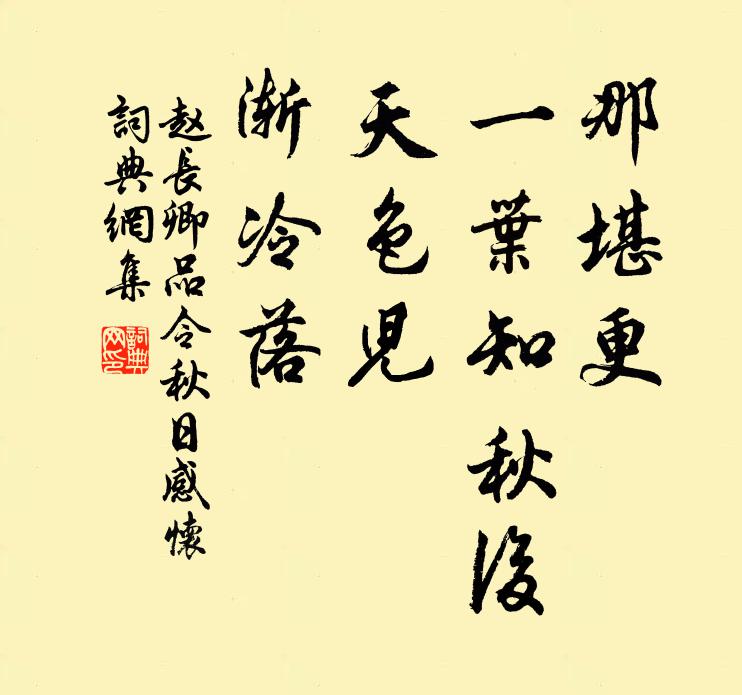 那堪更
一葉知秋後
天色兒
漸冷落
赵長卿品令秋日感懷
詞典網集
詞典网印